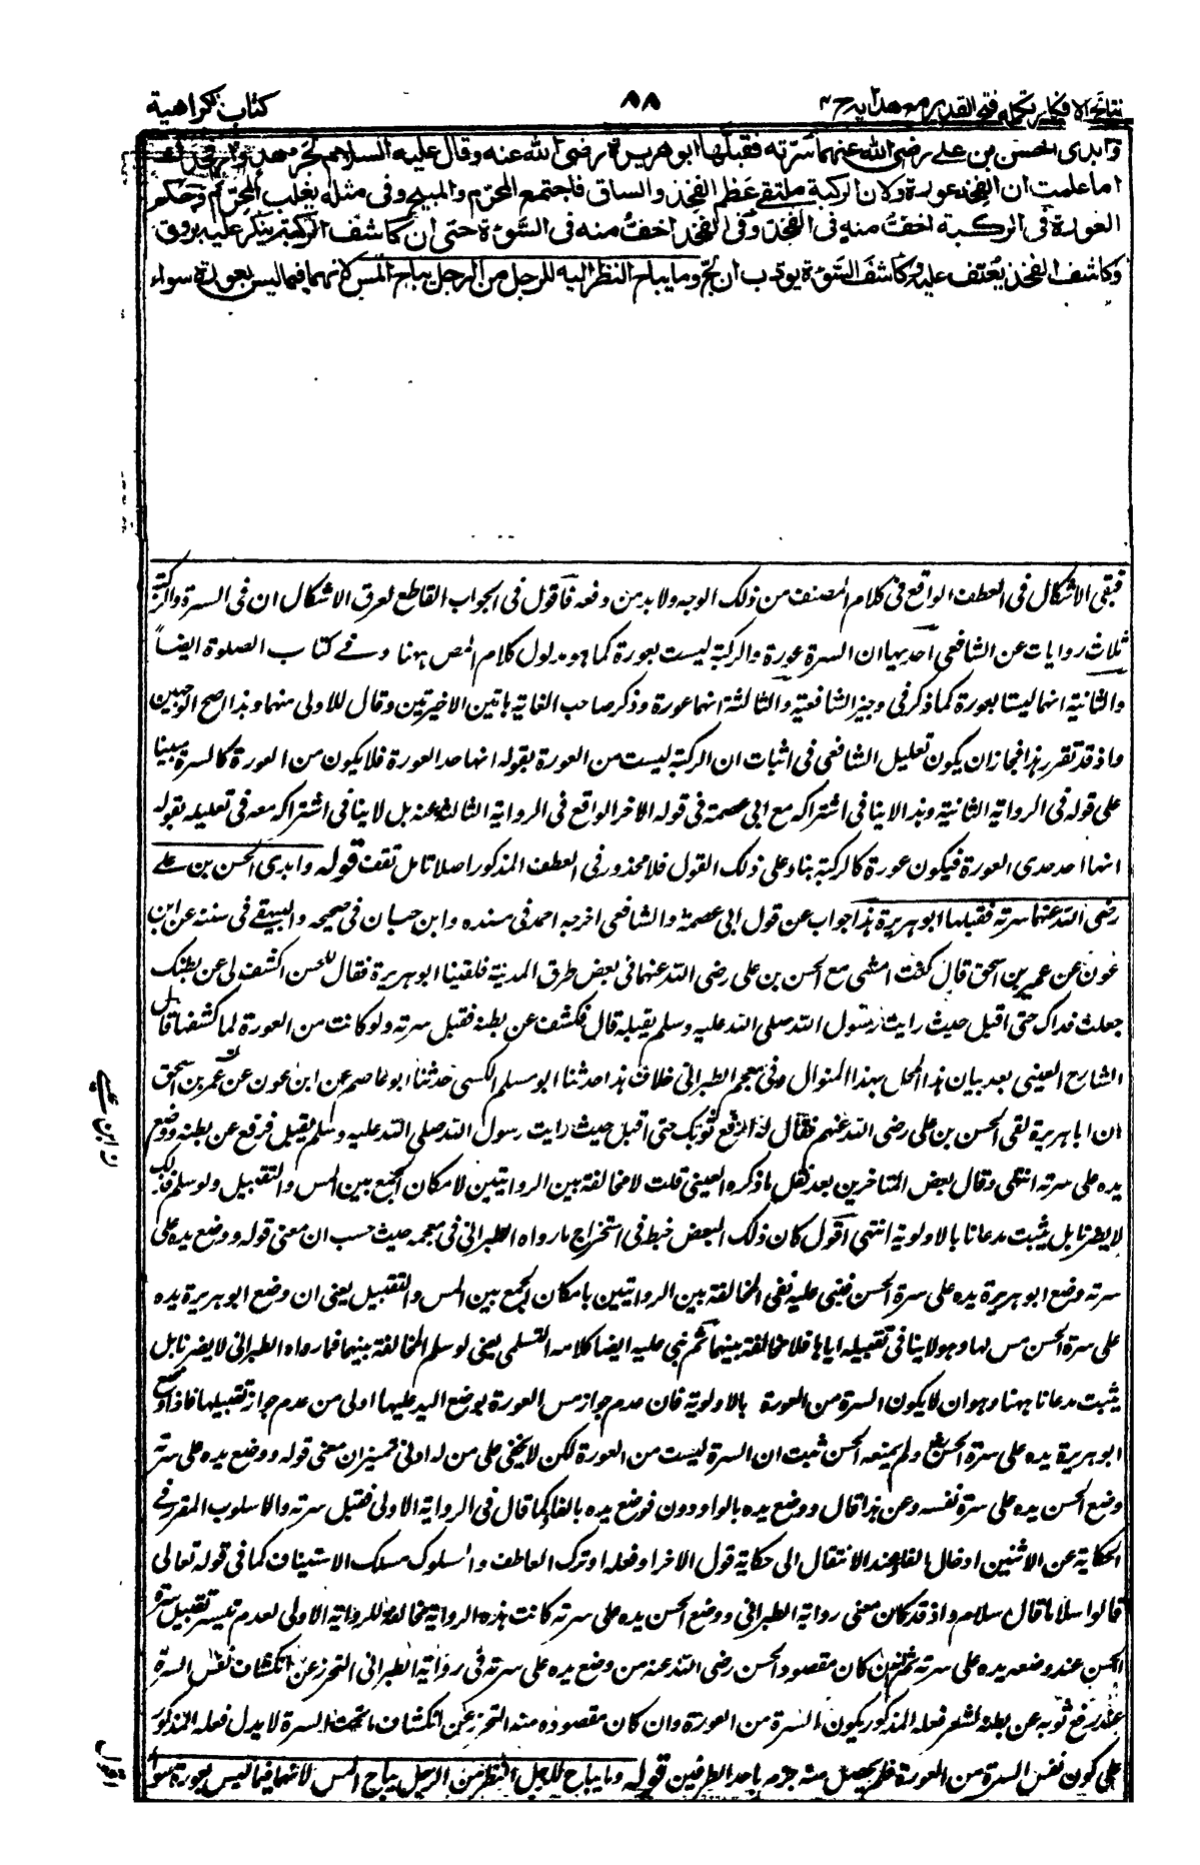 نتائج الافكار تكملة فتح القدير مع هداية ج ٤
٨٨
كتاب الكراهية
وابدى الحسن بن علے رضى الله عنهما سرته فقبلها ابو هريرة رضى الله عنه وقال عليه السلام لجرهد وار فخذك
اما علمت ان الفخذ عورة ولان الركبة ملتقے عظم الفخذ والساق فاجتمع المحرم والمبيح وفى مثله يغلب المحرم وحكم
العورة فى الركبة اخف منه فى الفخذ وفى الفخذ اخف منه فى السوءة حتى ان كاشف الركبة ينكر عليه برفق
وكاشف الفخذ يعنف عليه وكاشف السوءة يؤدب ان لج وما يباح النظر اليه للرجل من الرجل يباح المس لانهما فيما ليس بعورة سواء
فبقى الاشكال فى العطف الواقع فى كلام المصنف من ذلك الوجه ولا بد من دفعه فاقول فى الجواب القاطع لعرق الاشكال ان فى السرة والركبة
ثلاث روايات عن الشافعى احديها ان السرة عورة والركبة ليست بعورة كما هو مدلول كلام المص ههنا وفے كتاب الصلوة ايضاً
والثانية انهما ليستا بعورة كما ذكر فى وجيز الشافعية والثالثة انهما عورة وذكر صاحب الغاية هاتين الاخيرتين وقال للاولى منهما وهذا اصح الوجهين
واذ قد تقرر هذا فجاز ان يكون تعليل الشافعى فى اثبات ان الركبة ليست من العورة بقوله انها حد العورة فلا يكون من العورة كالسرة مبينا
على قوله فى الرواية الثانية وهذا لا ينافى اشتراكه مع ابى عصمة فى قوله الاخر الواقع فى الرواية الثالثة عنه بل لا ينافى اشتراكه معه فى تعليله بقوله
انها احد حدى العورة فيكون عورة كالركبة بناء على ذلك القول فلا محذور فى العطف المذكور اصلا تامل تقف قوله وابدى الحسن بن علے
رضى الله عنهما سرته فقبلها ابو هريرة هذا جواب عن قول ابى عصمة والشافعى اخرجه احمد فى مسنده وابن حبان فى صحيحه والبيهقے فى سننه عن ابن
عون عن عمير بن اسحق قال كنت امشى مع الحسن بن على رضى الله عنهما فى بعض طرق المدينة فلقينا ابو هريرة فقال للحسن اكشف لى عن بطنك
جعلت فداك حتى اقبل حيث رايت رسول الله صلى الله عليه وسلم يقبله قال فكشف عن بطنه فقبل سرته ولو كانت من العورة لما كشفها قال
الشارح العينى بعد بيان هذا المحل بهذا المنوال وفى معجم الطبرانى خلاف هذا حدثنا ابو مسلم الكسى حدثنا ابو عاصم عن ابن عون عن عمير بن اسحق
ان ابا هريرة لقى الحسن بن على رضى الله عنهم فقال له ارفع ثوبك حتى اقبل حيث رايت رسول الله صلى الله عليه وسلم يقبل فرفع عن بطنه ووضع
يده على سرته انتهى وقال بعض المتاخرين بعد نقل ما ذكره العينى قلت لا مخالفة بين الروايتين لامكان الجمع بين المس والتقبيل ولو سلم فذلك
لا يضرنا بل يثبت مدعانا بالاولوية انتهى اقول كان ذلك البعض خبط فى استخراج ما رواه الطبرانى فى معجمه حيث حسب ان معنى قوله ووضع يده على
سرته وضع ابو هريرة يده على سرة الحسن فبنى عليه نفى المخالفة بين الروايتين بامكان الجمع بين المس والتقبيل يعنى ان وضع ابو هريرة يده
على سرة الحسن مس لها وهو لا ينافى تقبيله اياها فلا مخالفة بينهما ثم بنى عليه ايضا كلامه التسلمى يعنى لو سلم المخالفة بينهما فما رواه الطبرانى لا يضرنا بل
يثبت مدعانا ههنا وهو ان لا يكون السرة من العورة بالاولوية فان عدم جواز مس العورة بوضع اليد عليها اولى من عدم جواز تقبيلها فاذا وضع
ابو هريرة يده على سرة الحسن ولم يمنعه الحسن ثبت ان السرة ليست من العورة لكن لا يخفى على من له ادنى تميز ان معنى قوله ووضع يده على سرته
وضع الحسن يده على سرة نفسه وعن هذا قال ووضع يده بالواو دون فوضع يده بالفاء كما قال فى الرواية الاولى فقبل سرته والاسلوب المقرر فے
الحكاية عن الاثنين ادخال الفاء عند الانتقال الى حكاية قول الاخر او فعله او ترك العاطف والسلوك مسلك الاستيناف كما فى قوله تعالى
قالوا سلاما قال سلام واذ قد كان معنى رواية الطبرانى ووضع الحسن يده على سرته كانت هذه الرواية مخالفة للرواية الاولى لعدم تيسر تقبيل سرة
الحسن عند وضعه يده على سرته ثم ان كان مقصود الحسن رضى الله عنه من وضع يده على سرته فى رواية الطبرانى التحرز عن انكشاف نفس السرة
عند رفع ثوبه عن بطنه اشعر فعله المذكور بكون السرة من العورة وان كان مقصوده منه التحرز عن انكشاف ما تحت السرة لا يدل فعله المذكور
على كون نفس السرة من العورة فلم يحصل منه جزم باحد الطرفين قوله وما يباح للرجل النظر من الرجل يباح المس لانهما فيما ليس بعورة سواء